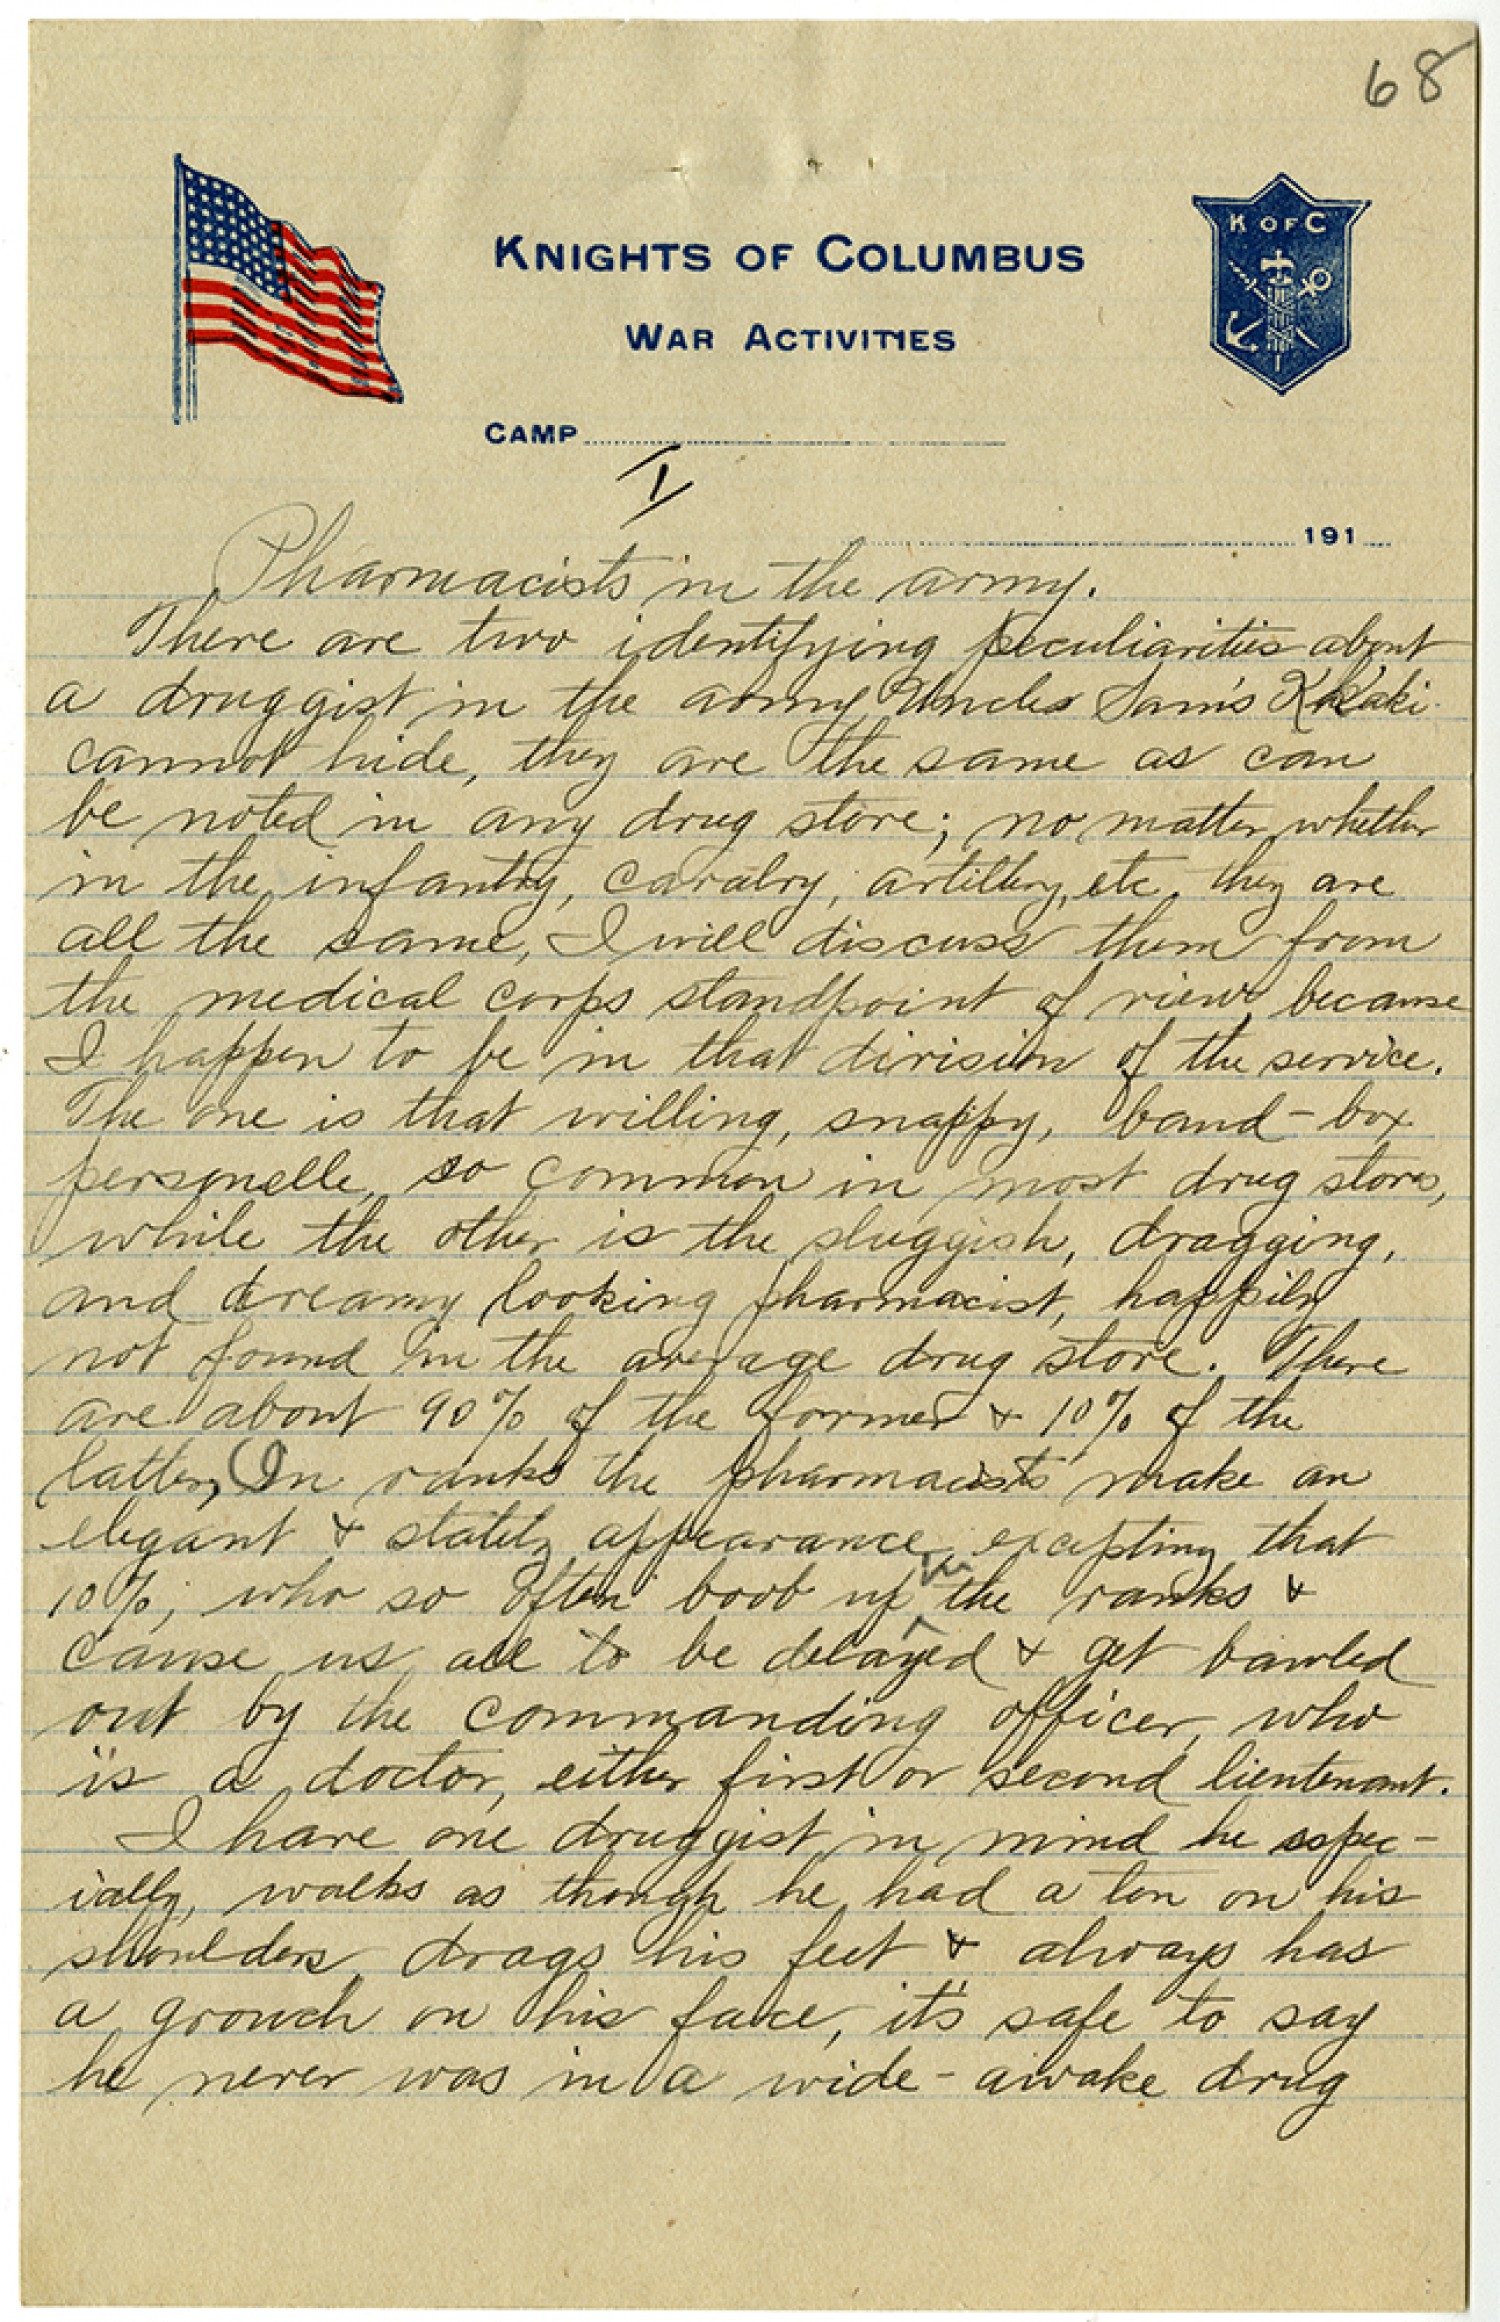 68
K OF C
KNIGHTS OF COLUMBUS
WAR ACTIVITIES
CAMP
I
191
Pharmacists in the army.
There are two identifying peculiarities about
a druggist in the army Uncle Sam's Khaki
cannot hide, they are the same as can
be noted in any drug store; no matter whether
in the infantry, cavalry, artillery, etc, they are
all the same, I will discuss them from
the medical corps standpoint of view, because
I happen to be in that division of the service.
The one is that willing, snappy, band-box
personelle, so common in most drug stores,
while the other is the sluggish, dragging,
and dreamy looking pharmacist, happily
not found in the average drug store. There
are about 90% of the former & 10% of the
latter, In ranks the pharmacists make an
elegant & stately appearance, excepting that
10%, who so often boob up in the ranks &
cause us all to be delayed & get bawled
out by the commanding officer, who
is a doctor, either first or second lieutenant.
I have one druggist in mind he espec-
ially, walks as though he had a ton on his
shoulders, drags his feet & always has
a grouch on his face, it's safe to say
he never was in a wide-awake drug